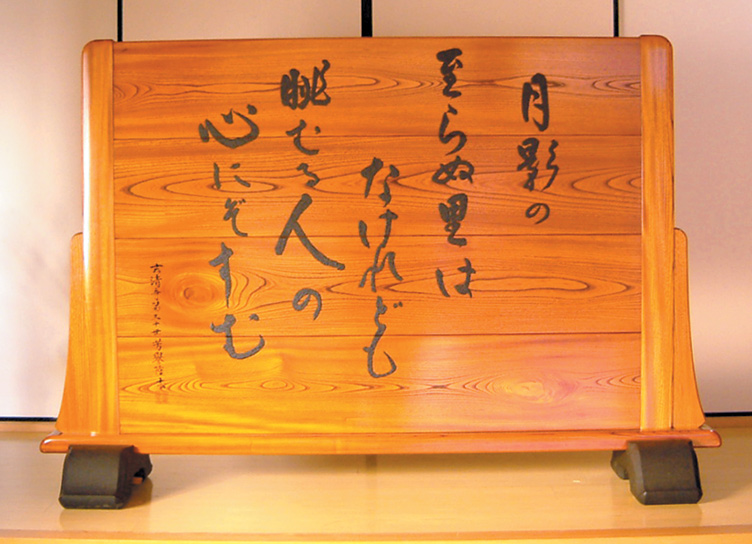 月影の
至らぬ里は
なけれども
眺むる人の
心にぞすむ